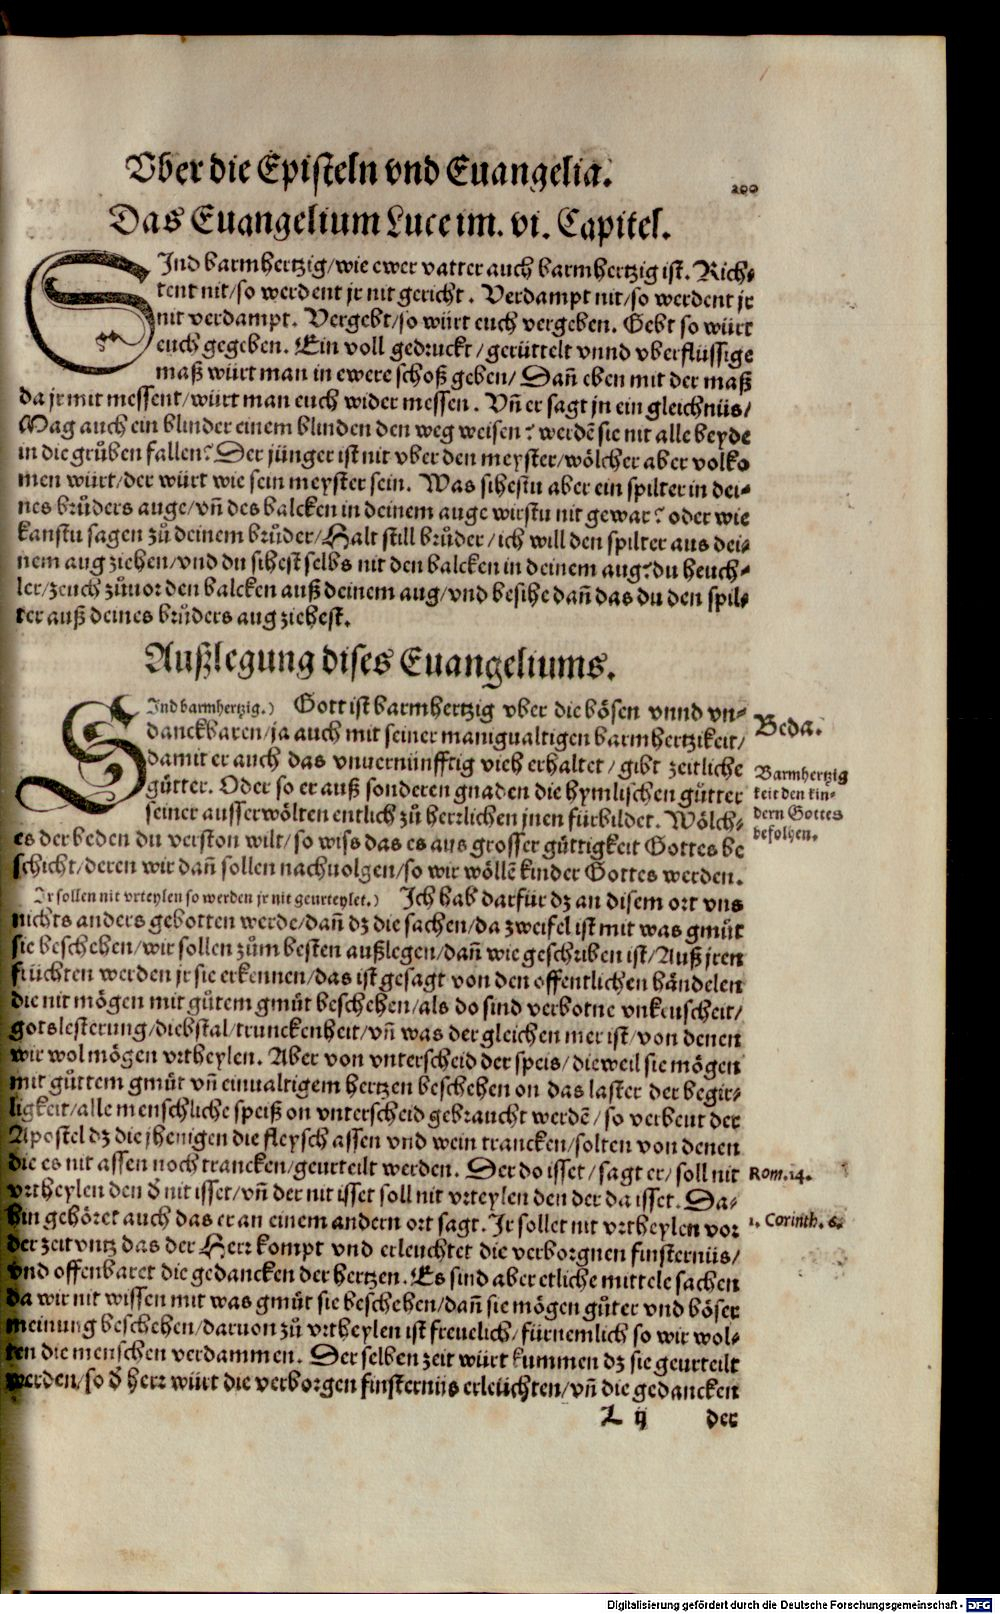 Vber die Episteln vnd Euangelia.
200
Das Euangelium Luce im. vi. Capitel.
SInd barmhertzig/wie ewer vatter auch barmhertzig ist. Rich-
tent nit/so werdent jr nit gericht. Verdampt nit/so werdent jr
nit verdampt. Vergebt/so würt euch vergeben. Gebt so würt
euch gegeben. Ein voll gedruckt/gerüttelt vnnd vberflüssige
maß würt man in ewere schoß geben/ Dañ eben mit der maß
da jr mit messent/würt man euch wider messen. Vñ er sagt jn ein gleichnüs/
Mag auch ein blinder einem blinden den weg weisen? werdẽ sie nit alle beyde
in die grůben fallen? Der jünger ist nit vber den meyster/wölcher aber volko
men würt/der würt wie sein meyster sein. Was sihestu aber ein spilter in dei-
nes brůders auge/vñ des balcken in deinem auge wirstu nit gewar? oder wie
kanstu sagen zů deinem brůder/Halt still brůder/ich will den spilter aus dei-
nem aug ziehen/vnd du sihest selbs nit den balcken in deinem aug? du heuch-
ler/zeuch zůuor den balcken auß deinem aug/vnd besihe dañ das du den spil-
ter auß deines brůders aug ziehest.
Außlegung dises Euangeliums.
SInd barmhertzig.) Gott ist barmhertzig vber die bösen vnnd vn-
danckbaren/ja auch mit seiner manigualtigen barmhertzikeit/
damit er auch das vnuernünfftig vieh erhaltet/gibt zeitliche
gütter. Oder so er auß sonderen gnaden die hymlischen gütter
seiner ausserwölten entlich zů herrlichen jnen fürbildet. Wölch-
es der beden du verston wilt/so wiss das es aus grosser güttigkeit Gottes be
schicht/deren wir dañ sollen nachuolgen/so wir wöllẽ kinder Gottes werden.
Beda.
Barmhertzig
keit den kin-
dern Gottes
befolhen.
Jr sollen nit vrteylen so werden jr nit geurteylet.) Ich hab darfür dz an disem ort vns
nichts anders gebotten werde/dañ dz die sachen/da zweifel ist mit was gmüt
sie beschehen/wir sollen zům besten außlegen/dañ wie geschriben ist/Auß jren
früchten werden jr sie erkennen/das ist gesagt von den offentlichen händelen
die nit mögen mit gůtem gmüt beschehen/als do sind verbotne vnkeuscheit/
gotslesterung/diebstal/trunckenheit/vñ was der gleichen mer ist/von denen
wir wol mögen vrtheylen. Aber von vnterscheid der speis/dieweil sie mögen
mit gůttem gmüt vñ einualtigem hertzen beschehen on das laster der begir-
ligkeit/alle menschliche speiß on vnterscheid gebraucht werdẽ/so verbeut der
Apostel dz die jhenigen die fleysch assen vnd wein trancken/solten von denen
die es nit assen noch trancken/geurteilt werden. Der do isset/sagt er/soll nit
vrtheylen den d̕ nit isset/vñ der nit isset soll nit vrteylen den der da isset. Da-
hin gehöret auch das er an einem andern ort sagt. Jr sollet nit vrtheylen vor
der zeit vntz das der Herr kompt vnd erleuchtet die verborgnen finsternüs/
vnd offenbaret die gedancken der hertzen. Es sind aber etliche mittele sachen
da wir nit wissen mit was gmüt sie beschehen/dañ sie mögen gůter vnd böser
meinung beschehen/daruon zů vrtheylen ist freuelich/fürnemlich so wir wol-
ten die menschen verdammen. Der selben zeit würt kummen dz sie geurteilt
werden/so d̕ herr würt die verborgen finsternüs erleüchten/vñ die gedancken
Rom. 14.
1. Corinth.
L ij der
Digitalisierung gefördert durch die Deutsche Forschungsgemeinschaft - DFG